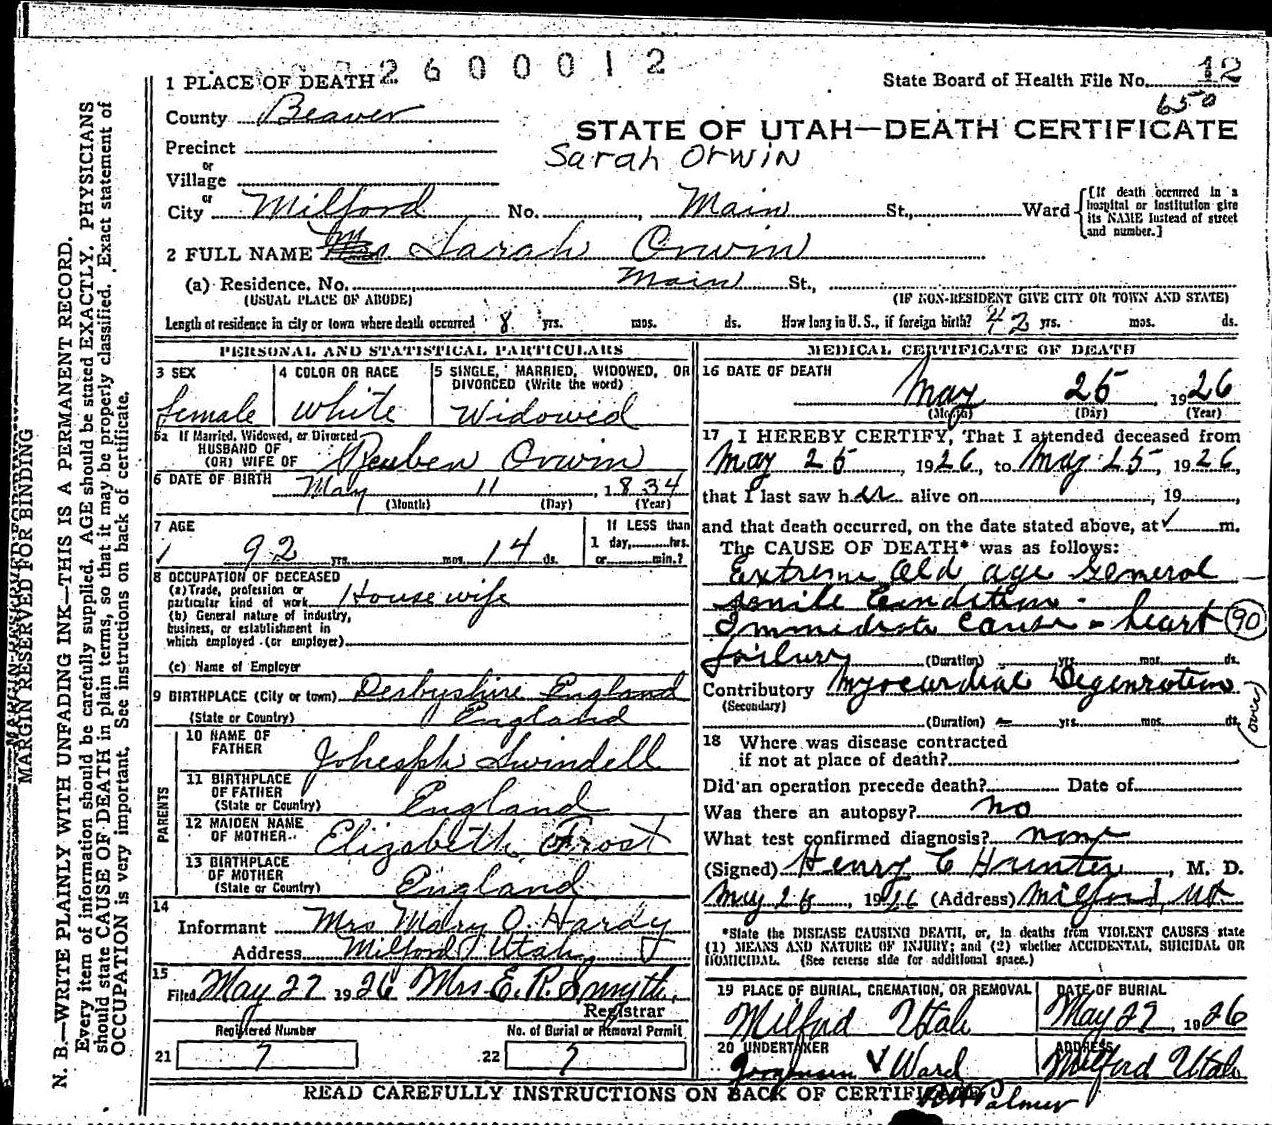 2600012
1 PLACE OF DEATH
State Board of Health File No. 12
650
County Beaver
STATE OF UTAH—DEATH CERTIFICATE
Precinct
Sarah Orwin
or
Village
or
City Milford No. , Main St., Ward {[If death occurred in a hospital or institution give its NAME instead of street and number.]
2 FULL NAME Mrs. Sarah Orwin
(a) Residence. No. Main St.,
(USUAL PLACE OF ABODE) (IF NON-RESIDENT GIVE CITY OR TOWN AND STATE)
Length of residence in city or town where death occurred 8 yrs. mos. ds. How long in U. S., if foreign birth? 42 yrs. mos. ds.
PERSONAL AND STATISTICAL PARTICULARS
3 SEX
female
4 COLOR OR RACE
white
5 SINGLE, MARRIED, WIDOWED, OR
DIVORCED (Write the word)
Widowed
5a If Married, Widowed, or Divorced
HUSBAND OF
(OR) WIFE OF Reuben Orwin
6 DATE OF BIRTH May 11, 1834
(Month) (Day) (Year)
7 AGE
92 yrs. mos. 14 ds.
If LESS than
1 day, hrs.
or min.?
8 OCCUPATION OF DECEASED
(a) Trade, profession or
particular kind of work Housewife
(b) General nature of industry,
business, or establishment in
which employed (or employer)
(c) Name of Employer
9 BIRTHPLACE (City or town) Desbyshire England
(State or Country) England
PARENTS
10 NAME OF
FATHER Johesph Swindell
11 BIRTHPLACE
OF FATHER
(State or Country) England
12 MAIDEN NAME
OF MOTHER Elizabeth Frost
13 BIRTHPLACE
OF MOTHER
(State or Country) England
14
Informant Mrs Mary O. Hardy
Address Milford Utah
15
Filed May 27 1926 Mrs E. R. Smyth,
Registrar
Registered Number
No. of Burial or Removal Permit
21 7
22 7
MEDICAL CERTIFICATE OF DEATH
16 DATE OF DEATH
May 25 1926
(Month) (Day) (Year)
17 I HEREBY CERTIFY, That I attended deceased from
May 25, 1926, to May 25, 1926,
that I last saw her alive on , 19 ,
and that death occurred, on the date stated above, at m.
The CAUSE OF DEATH* was as follows:
Extreme Old age General
senile Condition -
Immediate cause - heart 90
failury (Duration) yrs. mos. ds.
Contributory Myocardial Degenration
(Secondary)
(Duration) yrs. mos. ds.
(over)
18 Where was disease contracted
if not at place of death?
Did an operation precede death? Date of
Was there an autopsy? no
What test confirmed diagnosis? none
(Signed) Henry C Hunter, M. D.
May 26, 1926 (Address) Milford, Ut
*State the DISEASE CAUSING DEATH, or, in deaths from VIOLENT CAUSES state
(1) MEANS AND NATURE OF INJURY; and (2) whether ACCIDENTAL, SUICIDAL OR
HOMICIDAL. (See reverse side for additional space.)
19 PLACE OF BURIAL, CREMATION, OR REMOVAL
Milford Utah
DATE OF BURIAL
May 27, 1926
20 UNDERTAKER
Jorgensen & Ward
ADDRESS
Milford Utah
READ CAREFULLY INSTRUCTIONS ON BACK OF CERTIFICATE
Palmer
MARGIN RESERVED FOR BINDING
N. B.—WRITE PLAINLY WITH UNFADING INK—THIS IS A PERMANENT RECORD.
Every item of information should be carefully supplied. AGE should be stated EXACTLY. PHYSICIANS
should state CAUSE OF DEATH in plain terms, so that it may be properly classified. Exact statement of
OCCUPATION is very important. See instructions on back of certificate.